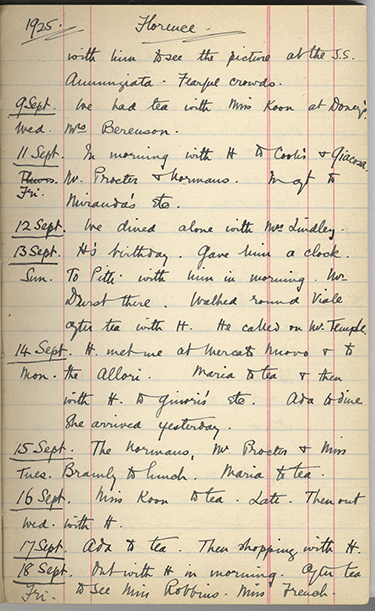 1925. Florence
with him to see the picture at the S.S.
Annunziata. Fearful crowds.
9 Sept. We had tea with Miss Koon at Doney's
Wed. Mrs Berenson.
11 Sept. In morning with H to Cook's & Giacosa.
Thurs. Mr. Procter & Normans. to
Fri. Miranda's Etc.
12 Sept. We dined alone with Mrs Lindley.
13 Sept. H's birthday. Gave him a clock.
Sun. To Pitti with him in morning. Mr
Durst there. Walked round Viale
after tea with H. He called on Mr. Temple.
14 Sept. H. met me at Mercato Nuovo & to
Mon. the Allori. Maria to tea & then
with H. to Ginori's Etc. Ada to dine
She arrived yesterday.
15 Sept. The Normans, Mr Procter & Miss
Tues. to lunch. Maria to tea.
16 Sept. Miss Koon to tea. Late. Then out
Wed. with H.
17 Sept. Ada to tea. Then shopping with H.
18 Sept. Out with H in morning. After tea
Fri. to see Miss Robbins. Miss French